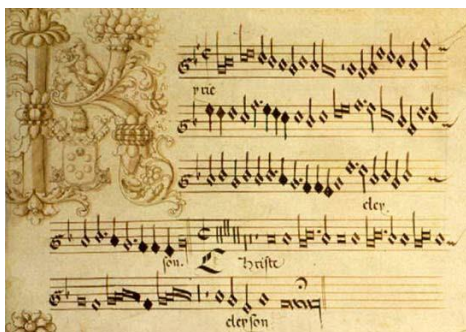 Kyrie
eley
son. Christe
eleyson